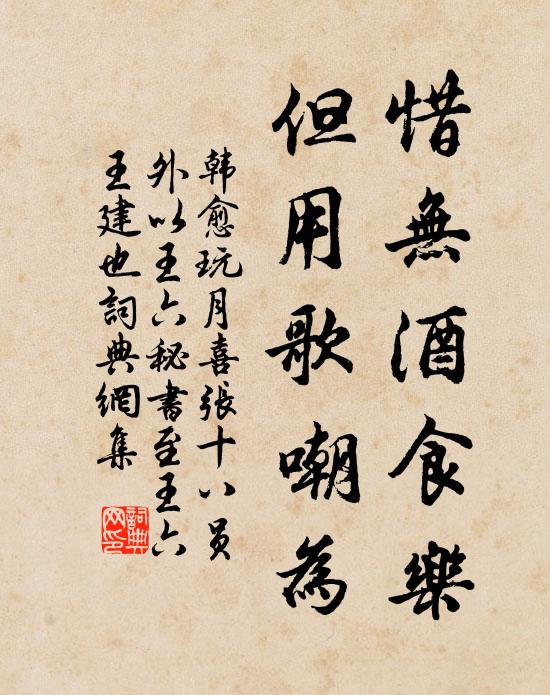 惜無酒食樂
但用歌嘲為
韓愈玩月喜張十八員
外以王六秘書至王六
王建也詞典網集
詞典
网印